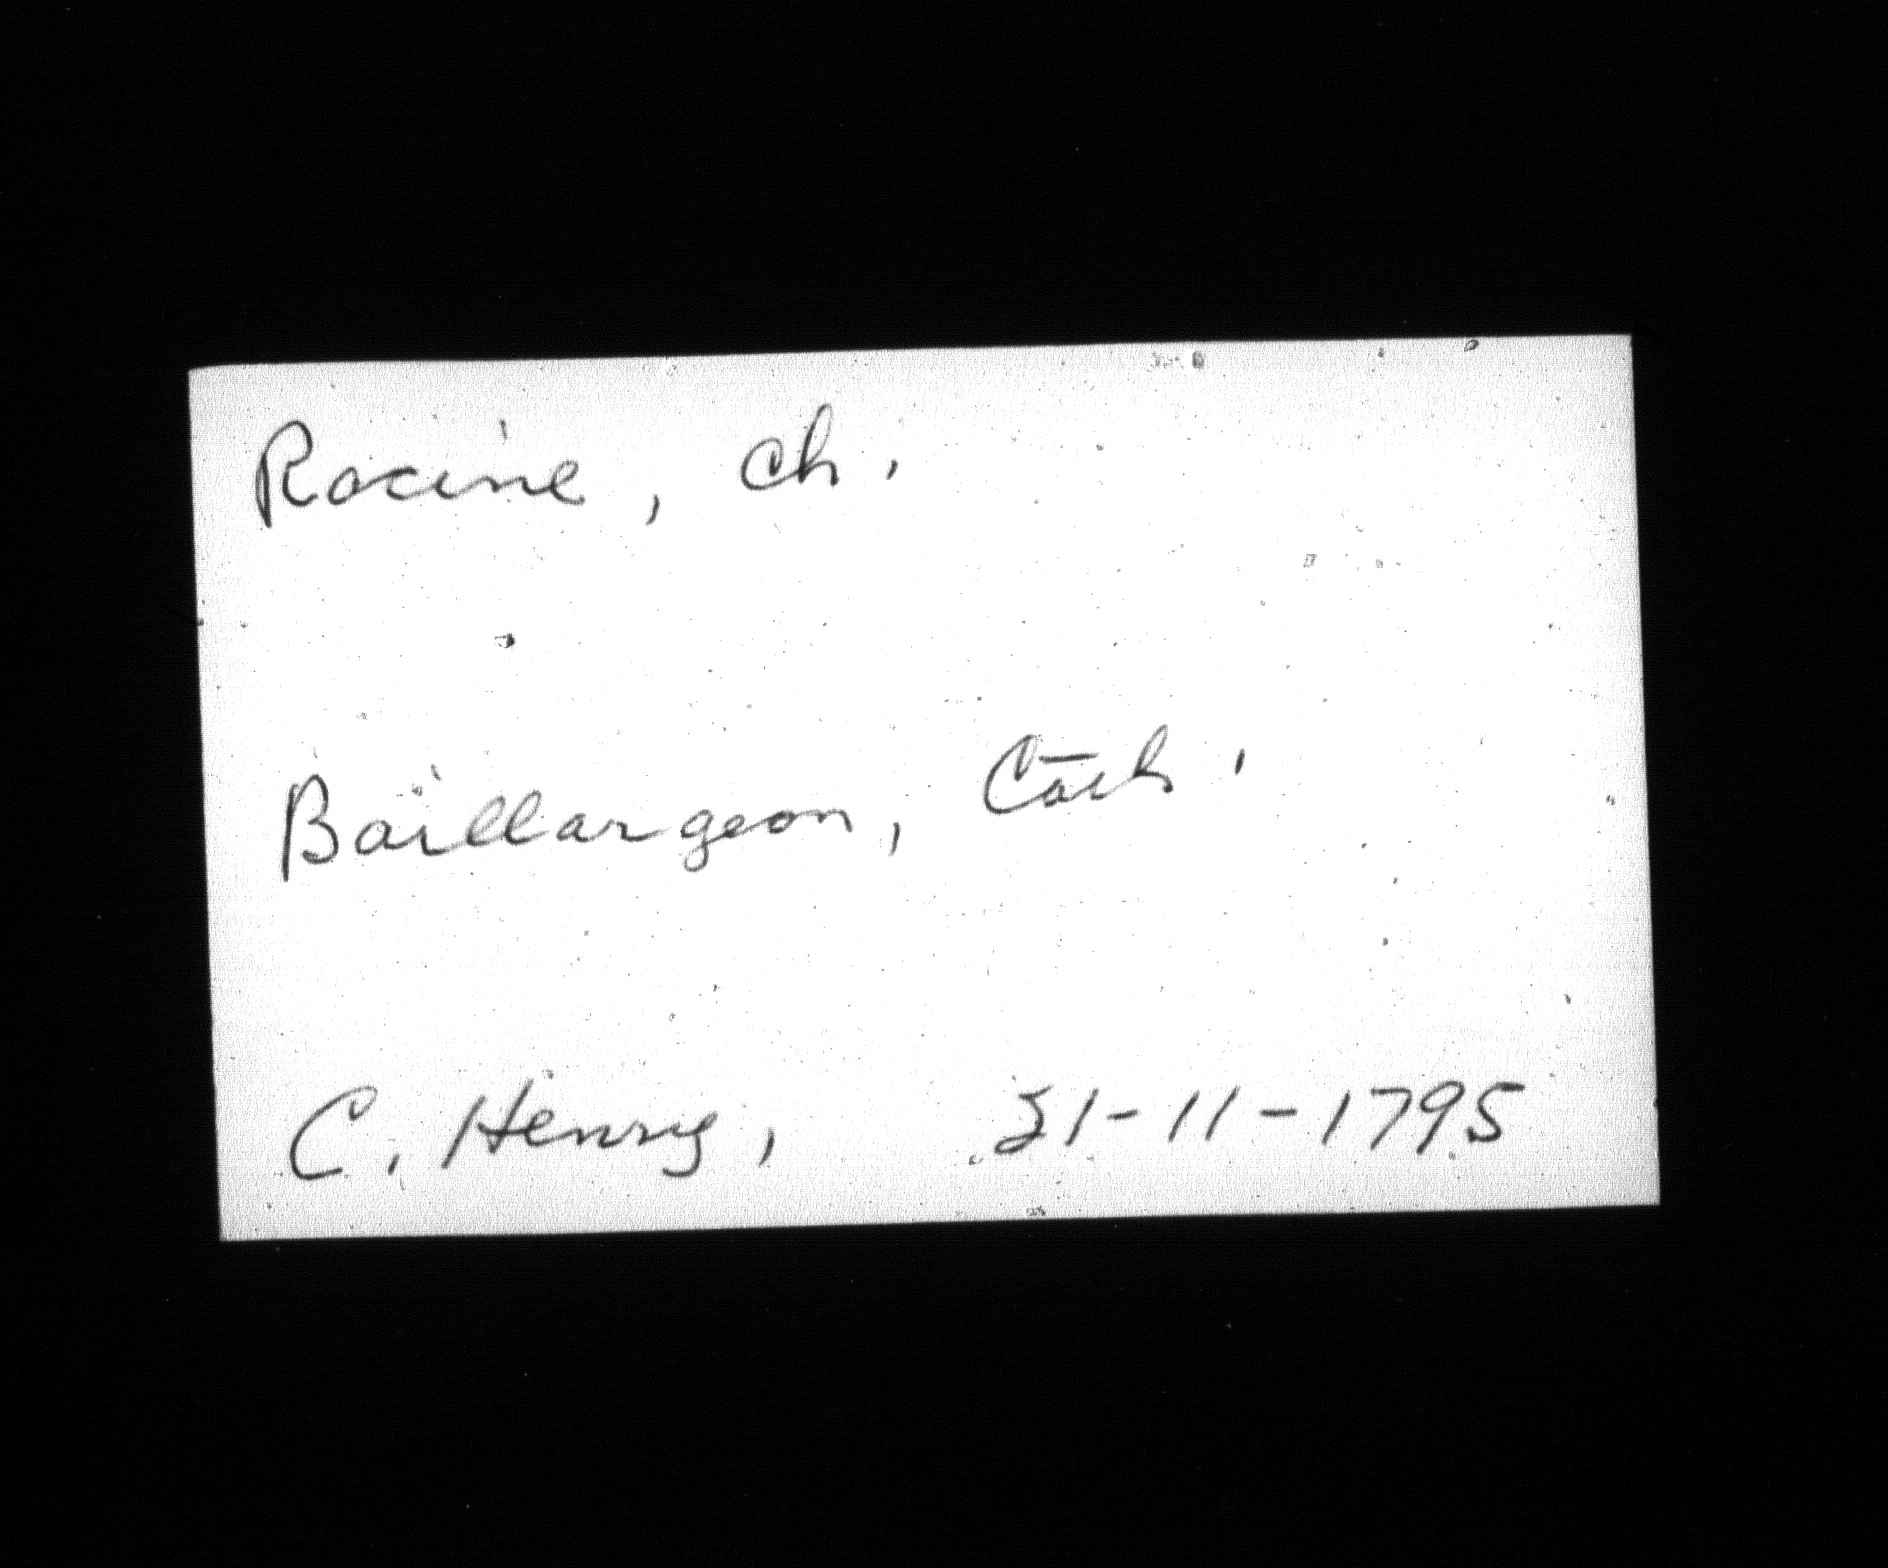 Racine, Ch.
Baillargeon, Cath.
C. Henry, 21-11-1795